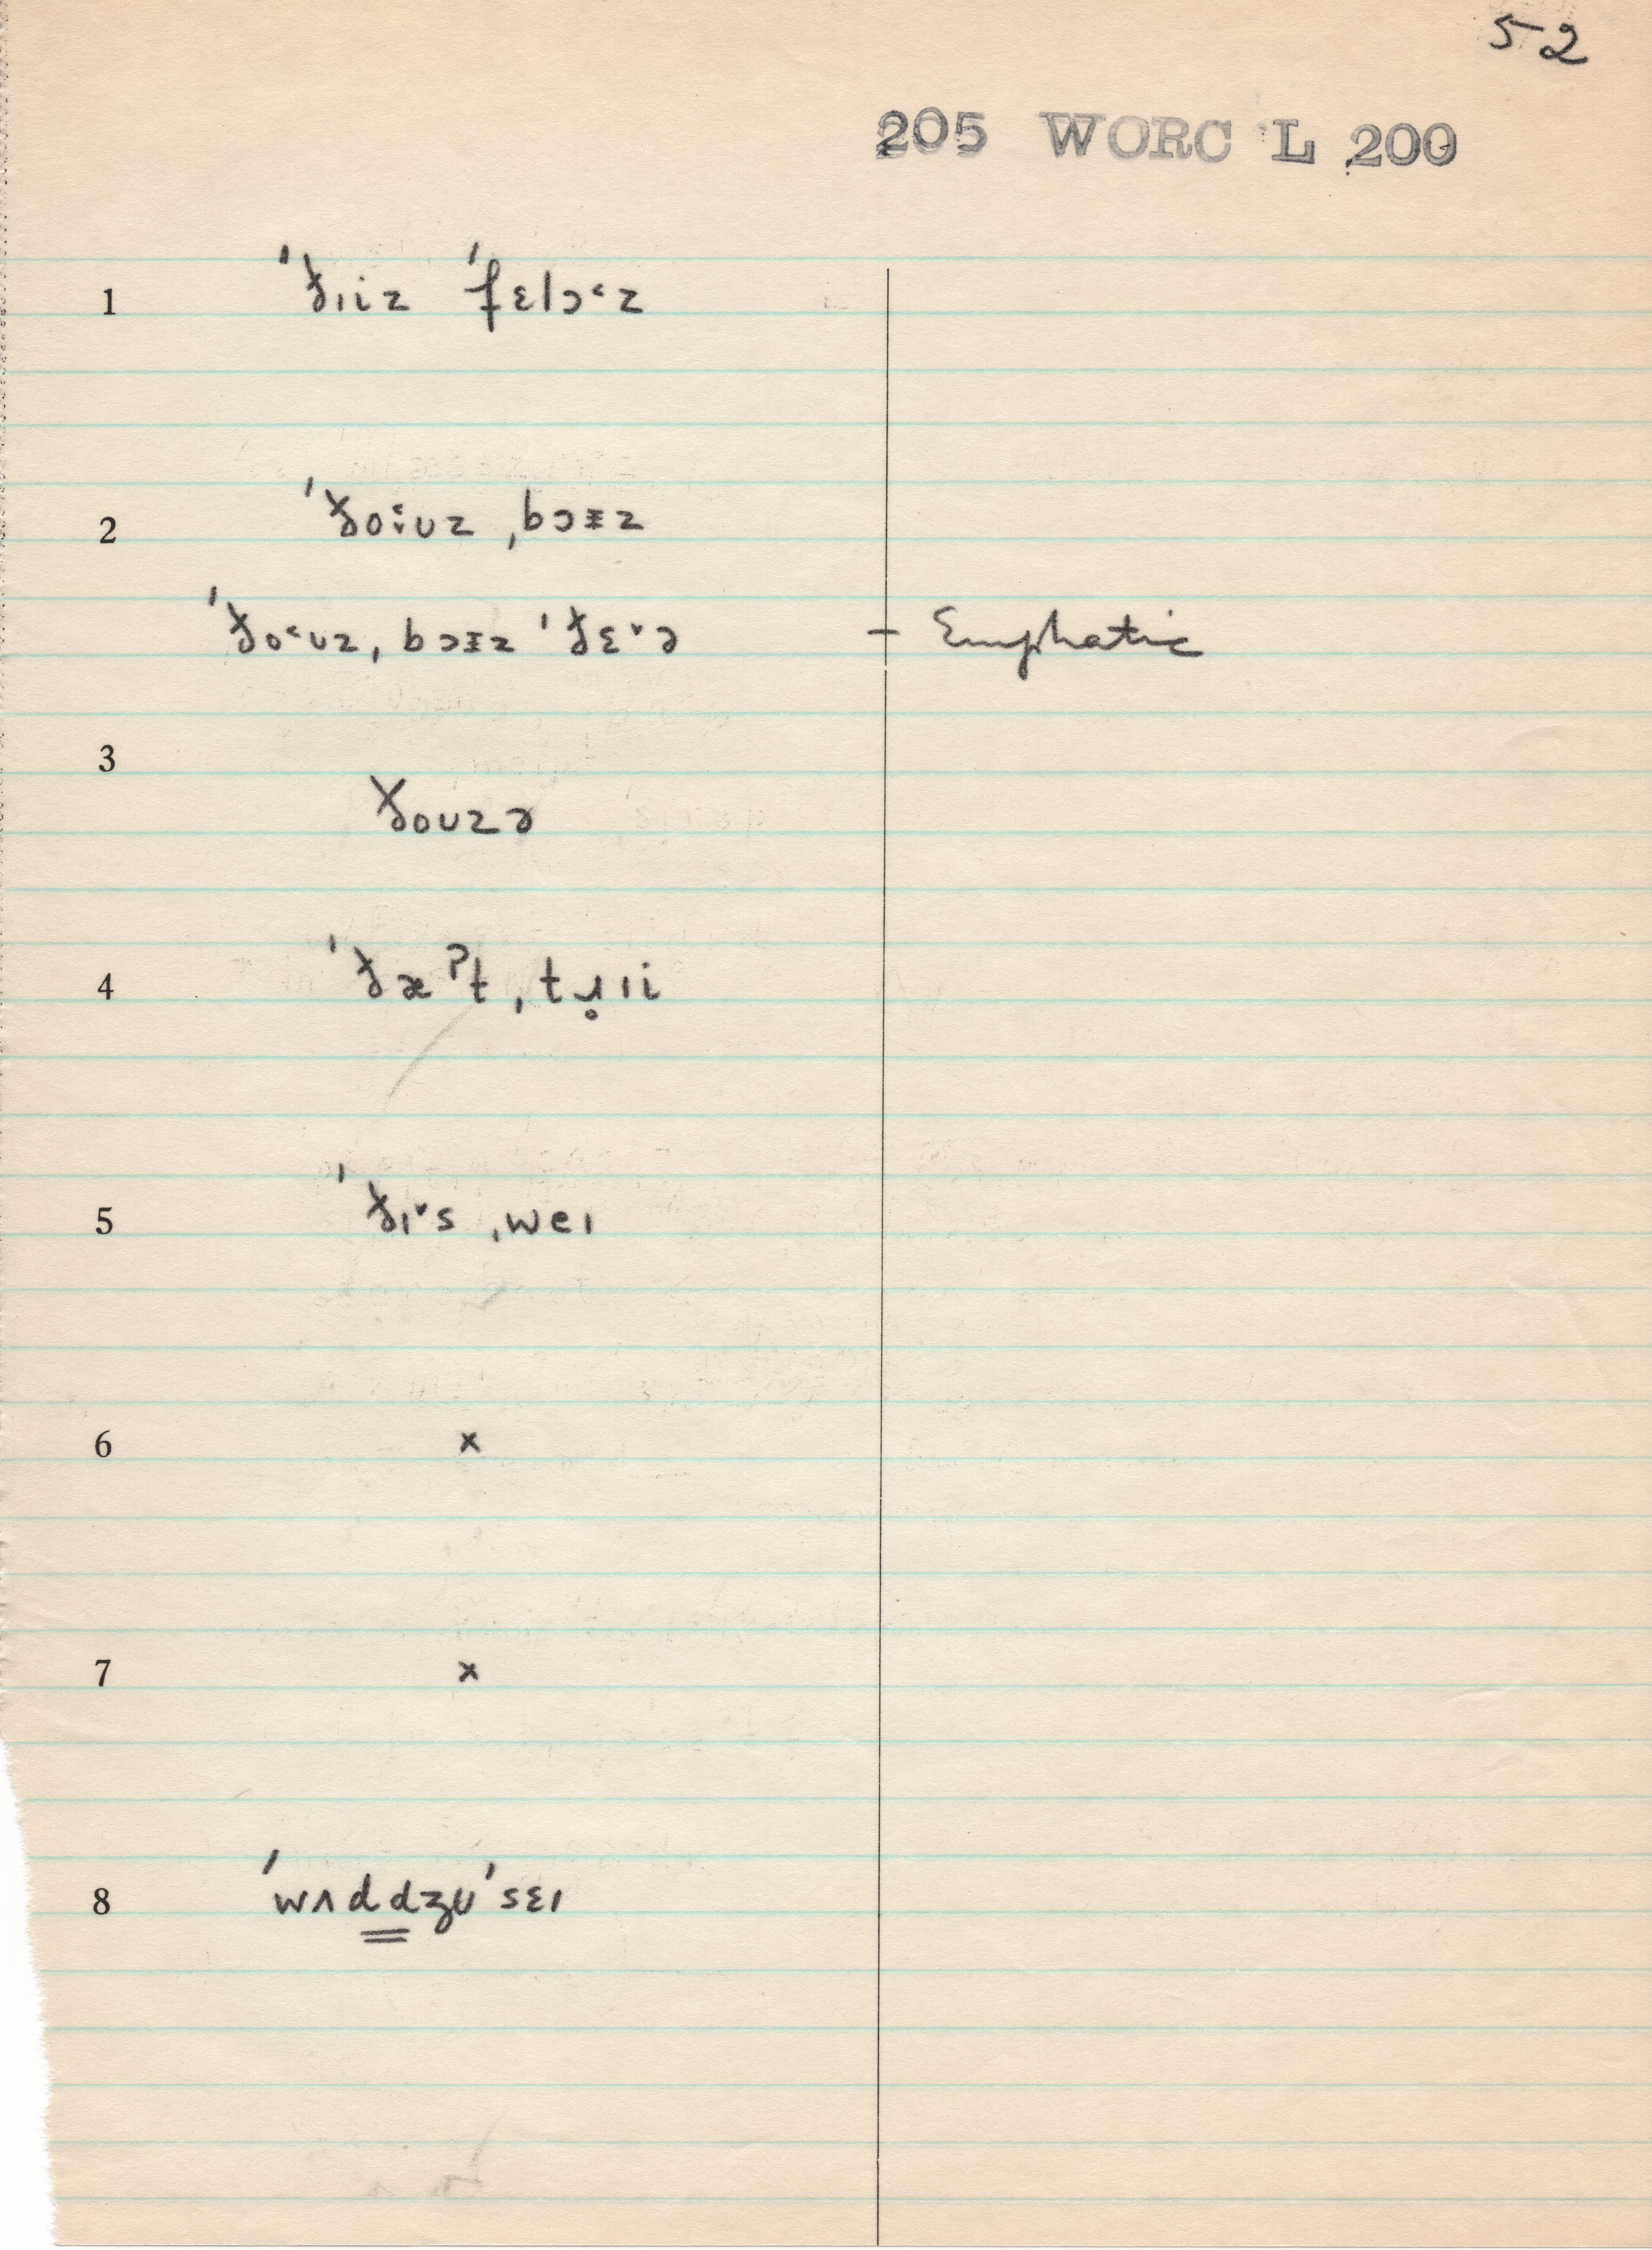 52
205 WORC L 200
1 ˈðɪiz ˈfɛlɔ˂z
2 ˈðoː˂ʊz ˌbɔɪz
ˈðo˂ʊz ˌbɔɪz ˈðɛ˅ə — Emphatic
3 ðoʊzə
4 ˈðæˀt ˌtɹ̥ɪi
5 ˈðɪ˅s ˌweɪ
6 x
7 x
8 ˈwʌddʒʊˈsɛɪ